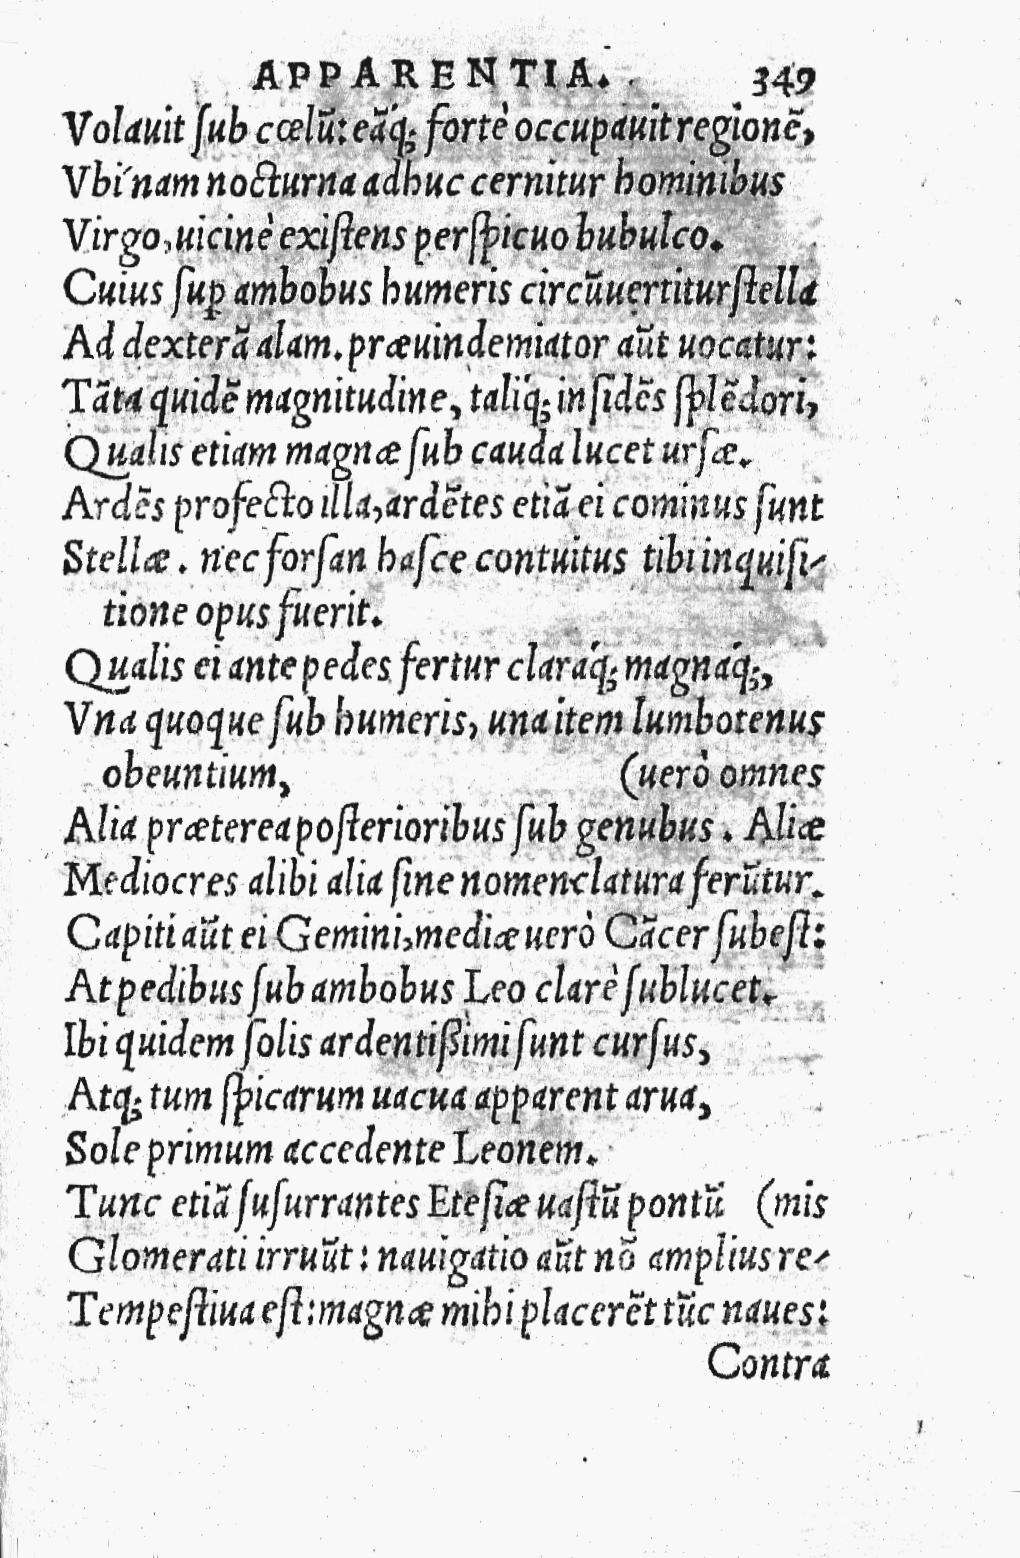 APPARENTIA. 349
Volauit ſub cœlũ: eãq́; fortè occupauit regionẽ,
Vbi nam nocturna adhuc cernitur hominibus
Virgo, uicinè exiſtens perſpicuo bubulco.
Cuius ſuꝑ ambobus humeris circũuertitur ſtella
Ad dexterã alam. præuindemiator aũt uocatur:
Tãta quidẽ magnitudine, taliq́; inſidẽs ſplẽdori,
Qualis etiam magnæ ſub cauda lucet urſæ.
Ardẽs profecto illa, ardẽtes etiã ei cominus ſunt
Stellæ. nec forſan haſce contuitus tibi inquiſi-
tione opus fuerit.
Qualis ei ante pedes fertur claraq́; magnaq́;,
Vna quoque ſub humeris, una item lumbotenus
obeuntium, (uerò omnes
Alia præterea poſterioribus ſub genubus. Aliæ
Mediocres alibi alia ſine nomenclatura ferũtur.
Capiti aũt ei Gemini, mediæ uerò Cãcer ſubeſt:
At pedibus ſub ambobus Leo clarè ſublucet.
Ibi quidem ſolis ardentißimi ſunt curſus,
Atq; tum ſpicarum uacua apparent arua,
Sole primum accedente Leonem.
Tunc etiã ſuſurrantes Eteſiæ uaſtũ pontũ (mis
Glomerati irruũt: nauigatio aũt nõ amplius re-
Tempeſtiua eſt: magnæ mihi placerẽt tũc naues:
Contra